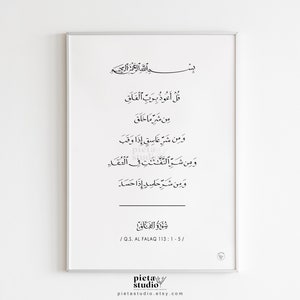 بِسْمِ اللَّهِ الرَّحْمَٰنِ الرَّحِيمِ
قُلْ أَعُوذُ بِرَبِّ الْفَلَقِ
مِن شَرِّ مَا خَلَقَ
وَمِن شَرِّ غَاسِقٍ إِذَا وَقَبَ
وَمِن شَرِّ النَّفَّاثَاتِ فِي الْعُقَدِ
وَمِن شَرِّ حَاسِدٍ إِذَا حَسَدَ
سُورَةُ الْفَلَقِ
/ Q.S. AL FALAQ 113 : 1 - 5 /
pieta
studio
pietastudio.etsy.com